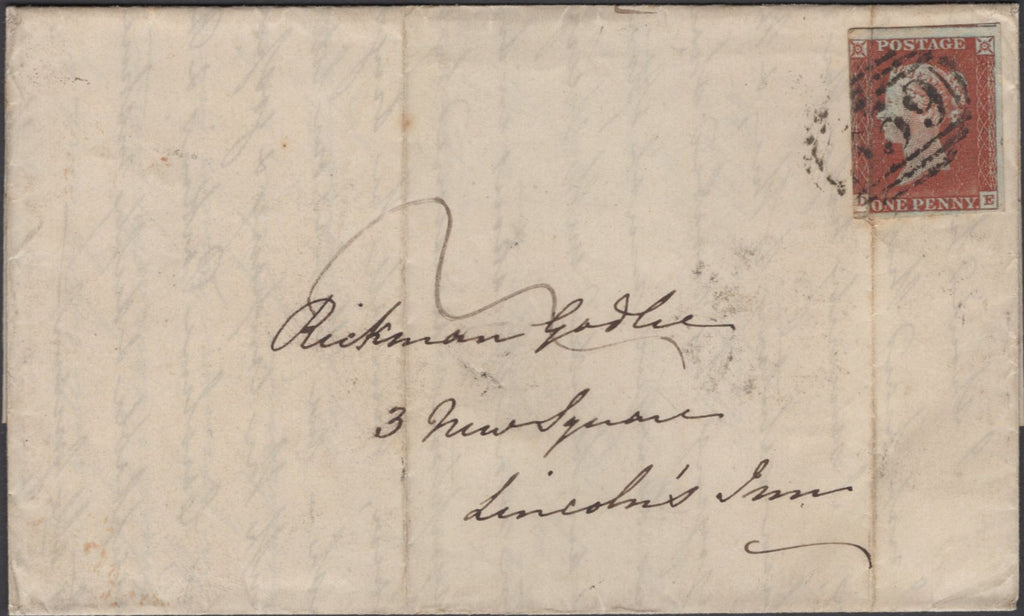 POSTAGE
99
D ONE PENNY. E
2
Rickman Godlee
3 New Square
Lincoln's Inn